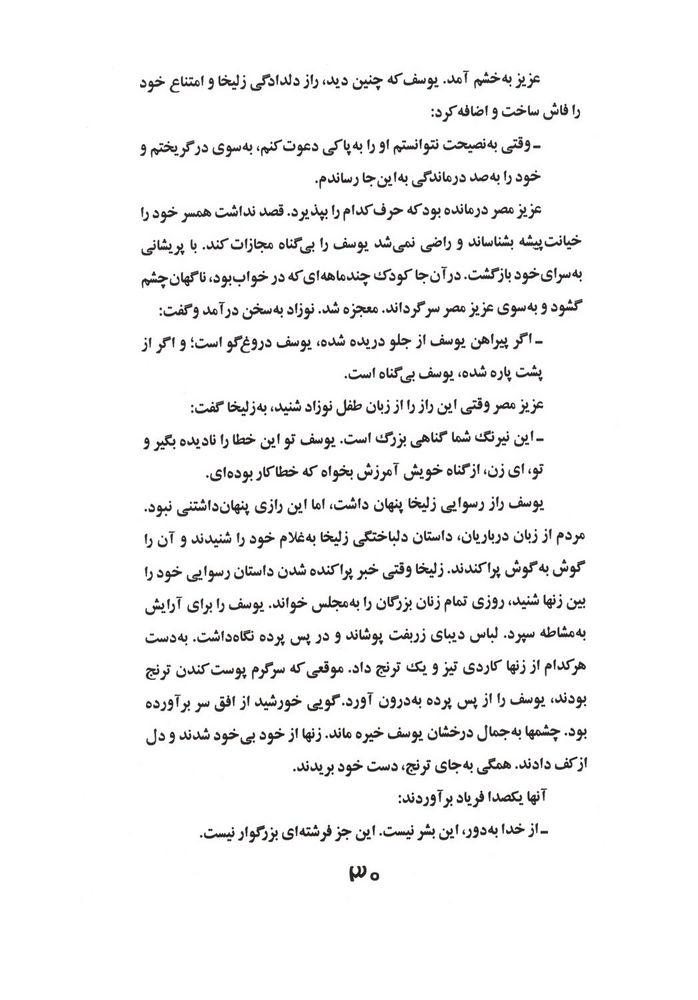 عزیز به‌خشم آمد. یوسف که چنین دید، راز دلدادگی زلیخا و امتناع خود
را فاش ساخت و اضافه کرد:
ـ وقتی به‌نصیحت نتوانستم او را به‌پاکی دعوت کنم، به‌سوی در گریختم و
خود را به‌صد درماندگی به‌این‌جا رساندم.
عزیز مصر درمانده بود که حرف کدام را بپذیرد. قصد نداشت همسر خود را
خیانت‌پیشه بشناساند و راضی نمی‌شد یوسف را بی‌گناه مجازات کند. با پریشانی
به‌سرای خود بازگشت. در آن‌جا کودک چندماهه‌ای که در خواب بود، ناگهان چشم
گشود و به‌سوی عزیز مصر سر گرداند. معجزه شد. نوزاد به‌سخن درآمد و گفت:
ـ اگر پیراهن یوسف از جلو دریده شده، یوسف دروغ‌گو است؛ و اگر از
پشت پاره شده، یوسف بی‌گناه است.
عزیز مصر وقتی این راز را از زبان طفل نوزاد شنید، به‌زلیخا گفت:
ـ این نیرنگ شما گناهی بزرگ است. یوسف تو این خطا را نادیده بگیر و
تو، ای زن، از گناه خویش آمرزش بخواه که خطاکار بوده‌ای.
یوسف راز رسوایی زلیخا پنهان داشت، اما این رازی پنهان‌داشتنی نبود.
مردم از زبان درباریان، داستان دلباختگی زلیخا به‌غلام خود را شنیدند و آن را
گوش به‌گوش پراکندند. زلیخا وقتی خبر پراکنده شدن داستان رسوایی خود را
بین زنها شنید، روزی تمام زنان بزرگان را به‌مجلس خواند. یوسف را برای آرایش
به‌مشاطه سپرد. لباس دیبای زربفت پوشاند و در پس پرده نگاه‌داشت. به‌دست
هرکدام از زنها کاردی تیز و یک ترنج داد. موقعی که سرگرم پوست کندن ترنج
بودند، یوسف را از پس پرده به‌درون آورد. گویی خورشید از افق سر برآورده
بود. چشمها به‌جمال درخشان یوسف خیره ماند. زنها از خود بی‌خود شدند و دل
از کف دادند. همگی به‌جای ترنج، دست خود بریدند.
آنها یکصدا فریاد برآوردند:
ـ از خدا به‌دور، این بشر نیست. این جز فرشته‌ای بزرگوار نیست.
۳۰